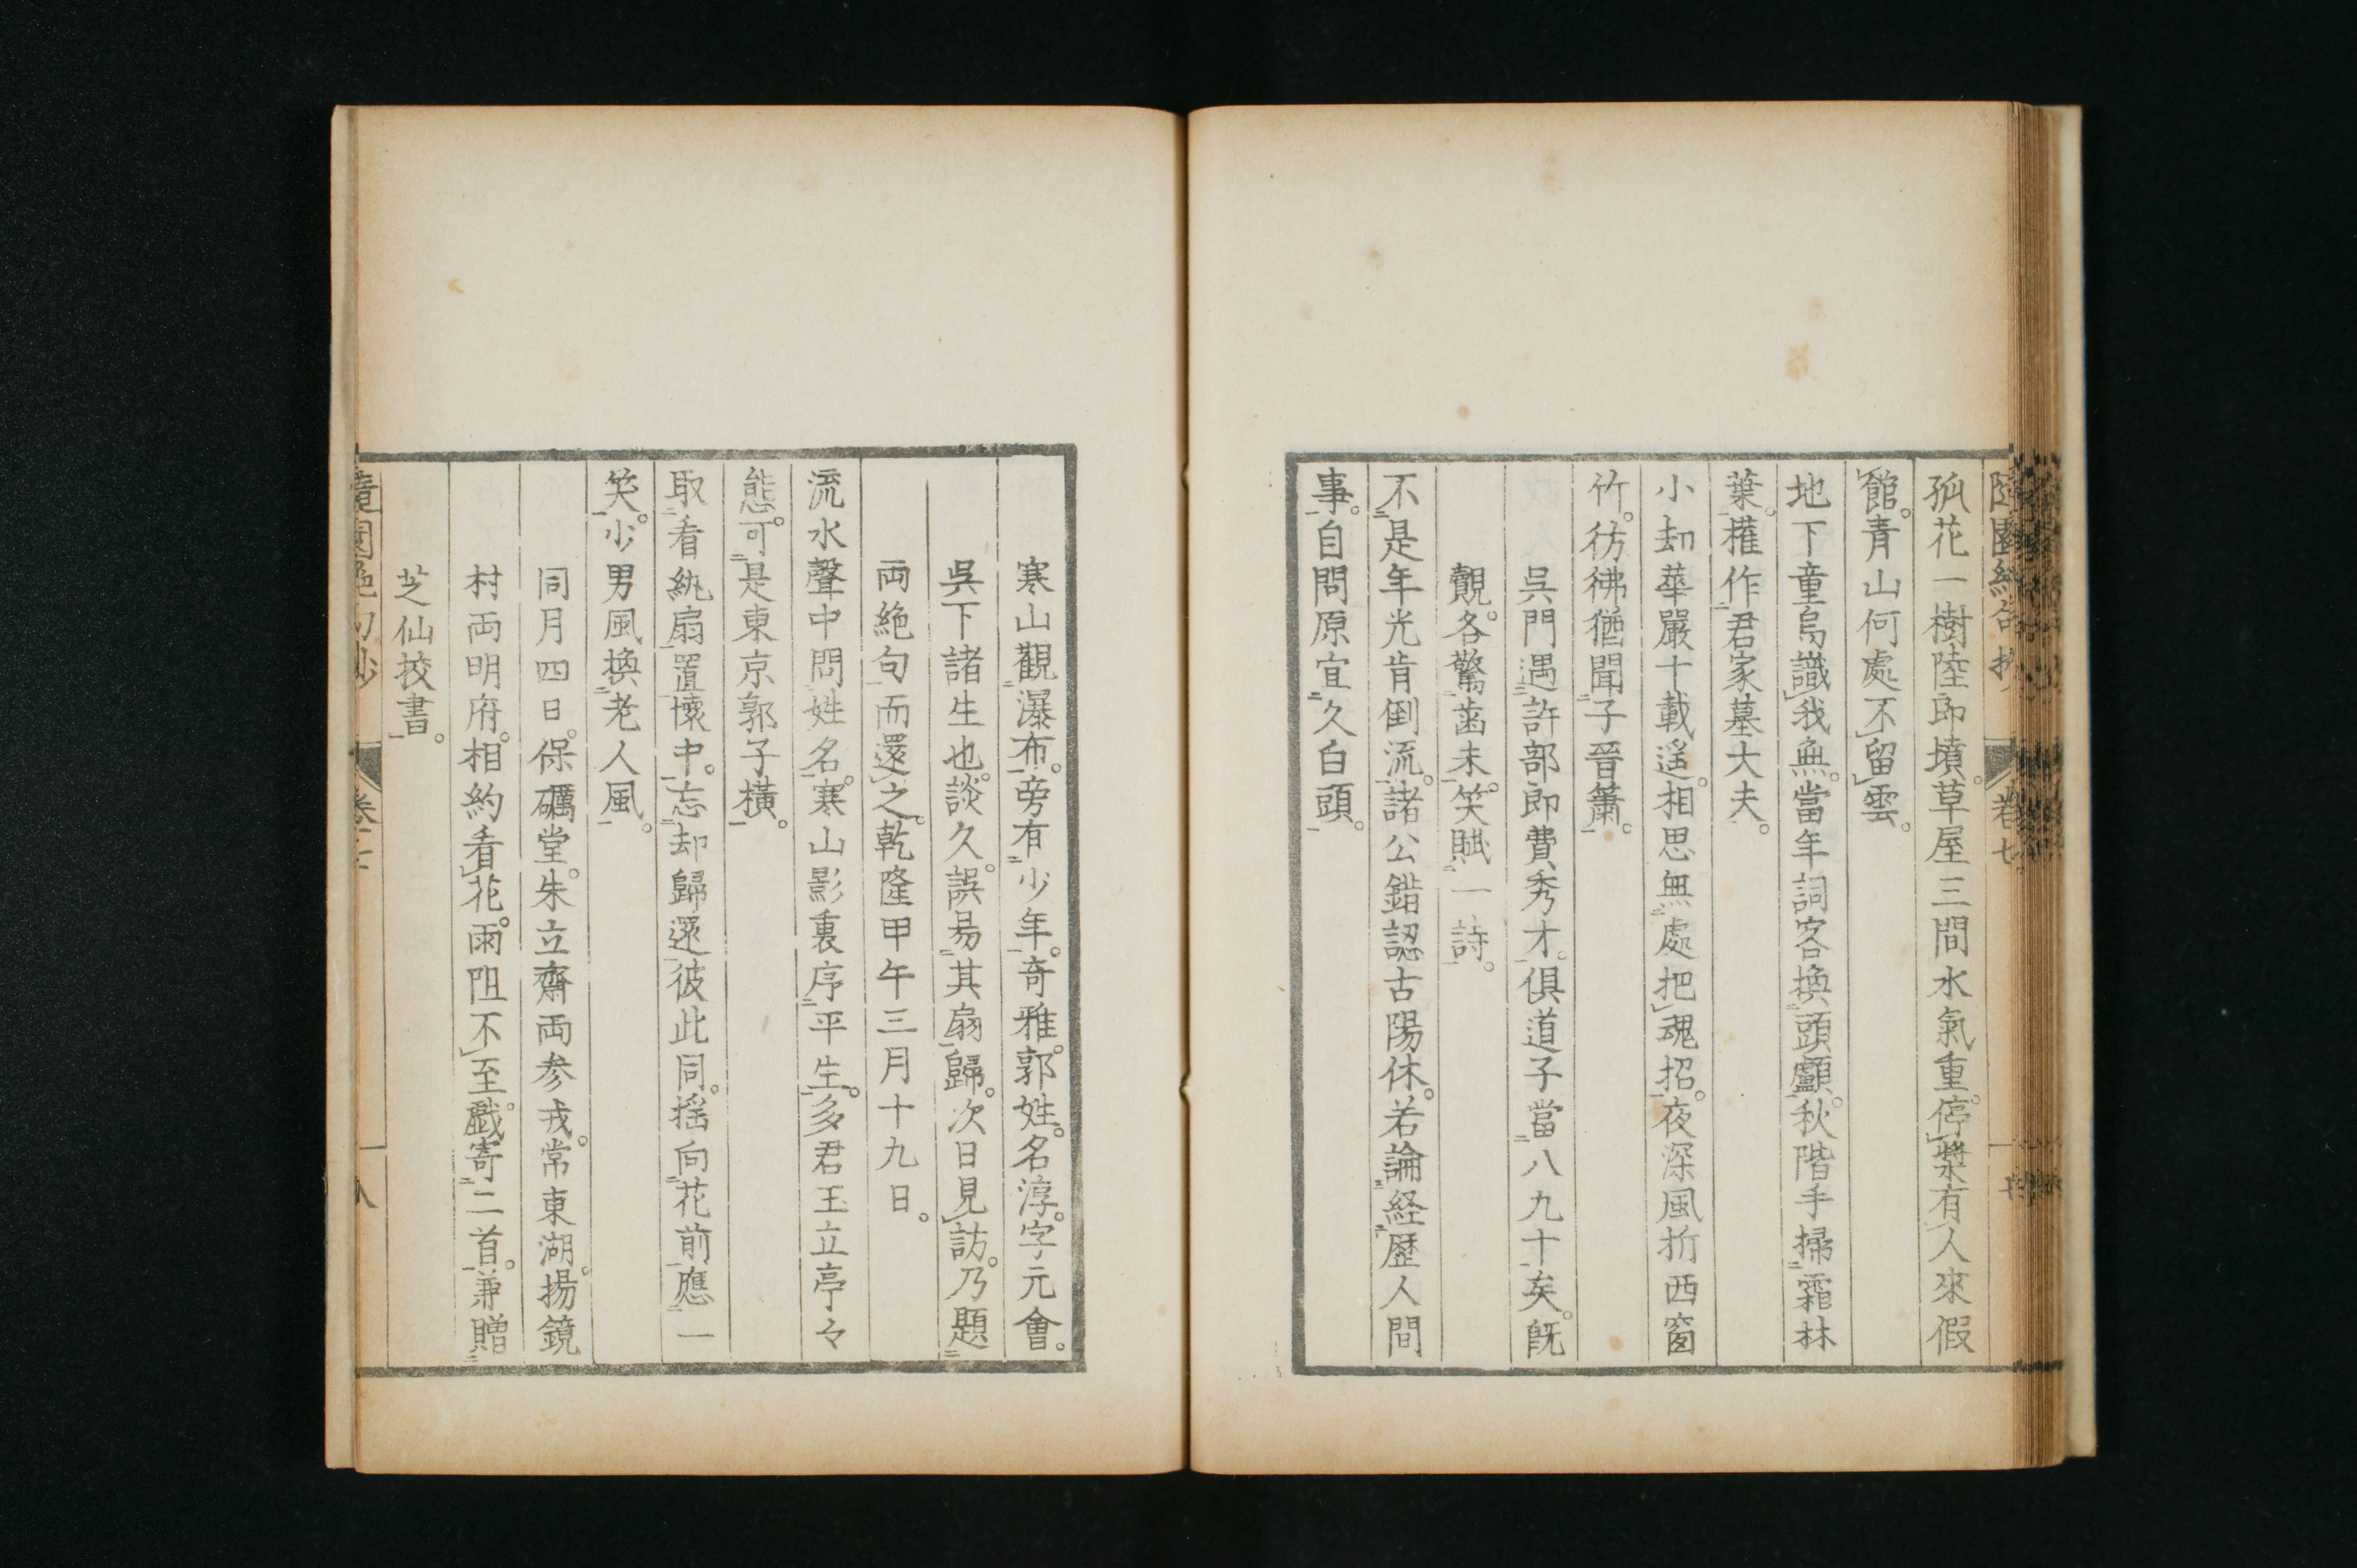 孤花一樹陸郎墳。草屋三間水氣重。停槳有人來假
館。青山何處不留雲。
地下童烏識我無。當年詞客換頭顱。秋階手掃霜林
葉。權作君家墓大夫。
小刧華嚴十載遙。相思無處把魂招。夜深風折西窗
竹。彷彿猶聞子晉簫。
吳門遇許部郎費秀才。俱道子當八九十矣。旣
覿。各驚齒未。笑賦一詩。
不是年光肯倒流。諸公錯認古陽休。若論経歷人間
事。自問原宜久白頭。
寒山觀瀑布。旁有少年。奇雅。郭姓。名淳。字元會。
吳下諸生也。談久。誤易其扇歸。次日見訪。乃題
両絶句而還之。乾隆甲午三月十九日。
流水聲中問姓名。寒山影裏序平生。多君玉立亭々
態。可是東京郭子橫。
取看紈扇置懷中。忘却歸還彼此同。揺向花前應一
笑。少男風換老人風。
同月四日。保礪堂。朱立齋両参戎。常東湖。揚鏡
村両明府。相約看花。雨阻不至。戯寄二首。兼贈
芝仙挍書。
卷七
八